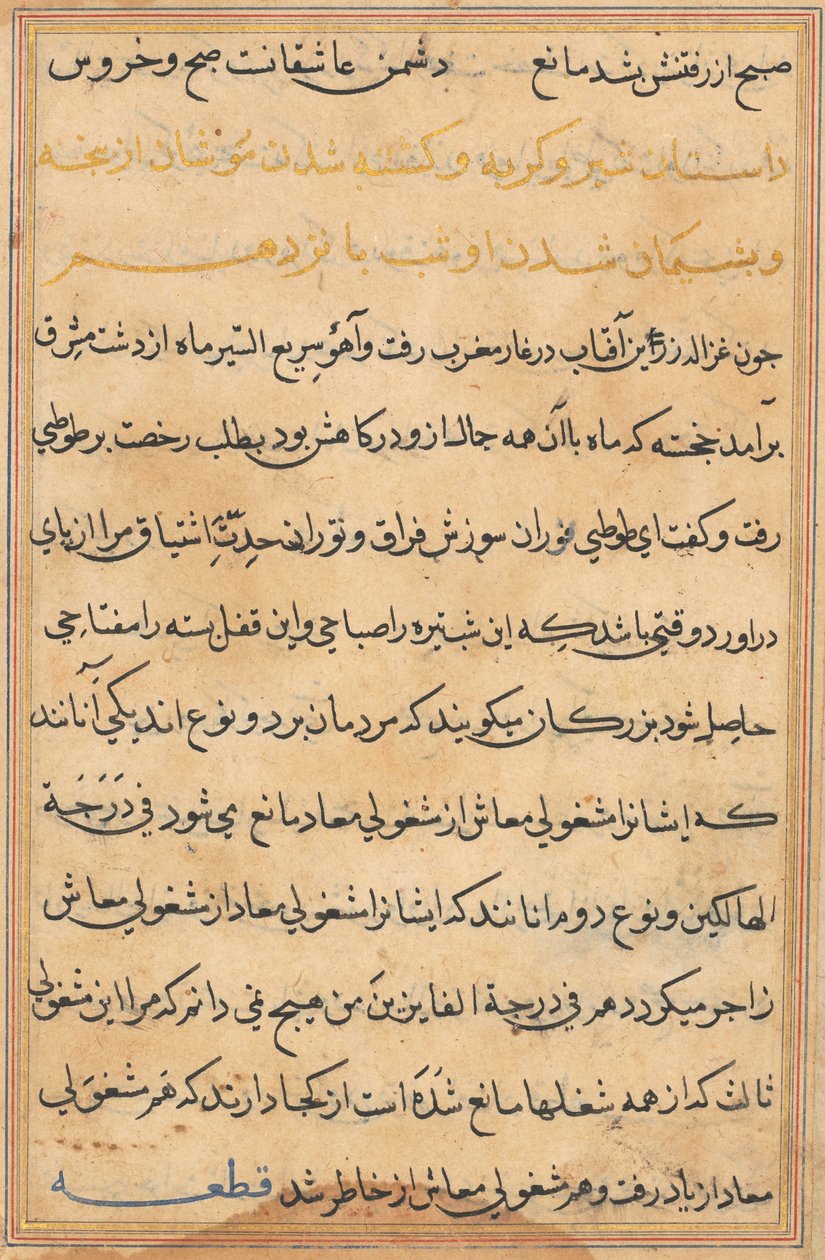 صبح از رفتنش بشد مانع دشمن عاشقانت صبح و خروس
داستان شیر و کربه و کشته شدن موشان از بچه
و بشیمان شدن او شب بانزدهم
جون غزاله زرین آفتاب در غار مغرب رفت و آهؤ سریع السّیر ماه از دشت مشرق
برآمد خجسته که ماه باآن همه جمال ازو در کاهش بود بطلب رخصت بر طوطی
رفت و کفت ای طوطی فوران سوزش فراق و نوّران حدِّتِ اشتیاق مرا از بای
در اورد وقتی باشد که این شب تیره را صباحی و این قفل بسته را مفتاحی
حاصِل شود بزرکان میکویند که مردمان بر دو نوع اند یکی آنانند
که ایشانرا مشغولی معاش از مشغولی معاد مانع می شود فی دَرَجَة
الهالکین و نوع دوم انانند که ایشانرا مشغولی معاد از مشغولی معاش
زاجر میکردد هم فی درجة الفایزینَ من هیچ نمی دانم که مرا این مشغولی
ثالث که از همه شغلها مانع شَدَه است از کجا دارند که هَم مشغوَلی
معاد از یاد رفت و هم مشغولی معاش از خاطر شد قطعه